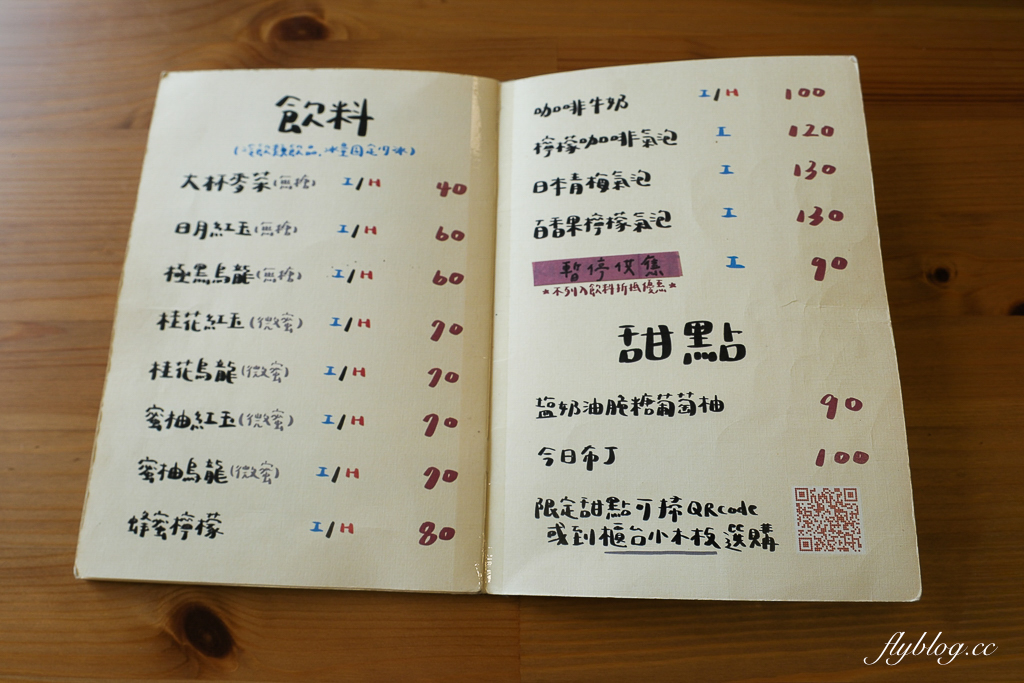 飲料
(冷飲類飲品,冰量固定少冰)
大杯麥菜(無糖) I/H 40
日月紅玉(無糖) I/H 60
極黑烏龍(無糖) I/H 60
桂花紅玉(微蜜) I/H 70
桂花烏龍(微蜜) I/H 70
蜜柚紅玉(微蜜) I/H 70
蜜柚烏龍(微蜜) I/H 70
蜂蜜檸檬 I/H 80
咖啡牛奶 I/H 100
檸檬咖啡氣泡 I 120
日本青梅氣泡 I 130
百香果檸檬氣泡 I 130
暫停 I 90
*不列入飲料折抵優惠*
甜點
塩奶油脆糖葡萄柚 90
今日布丁 100
限定甜點可掃QRcode
或到櫃台小木板選購
flyblog.cc